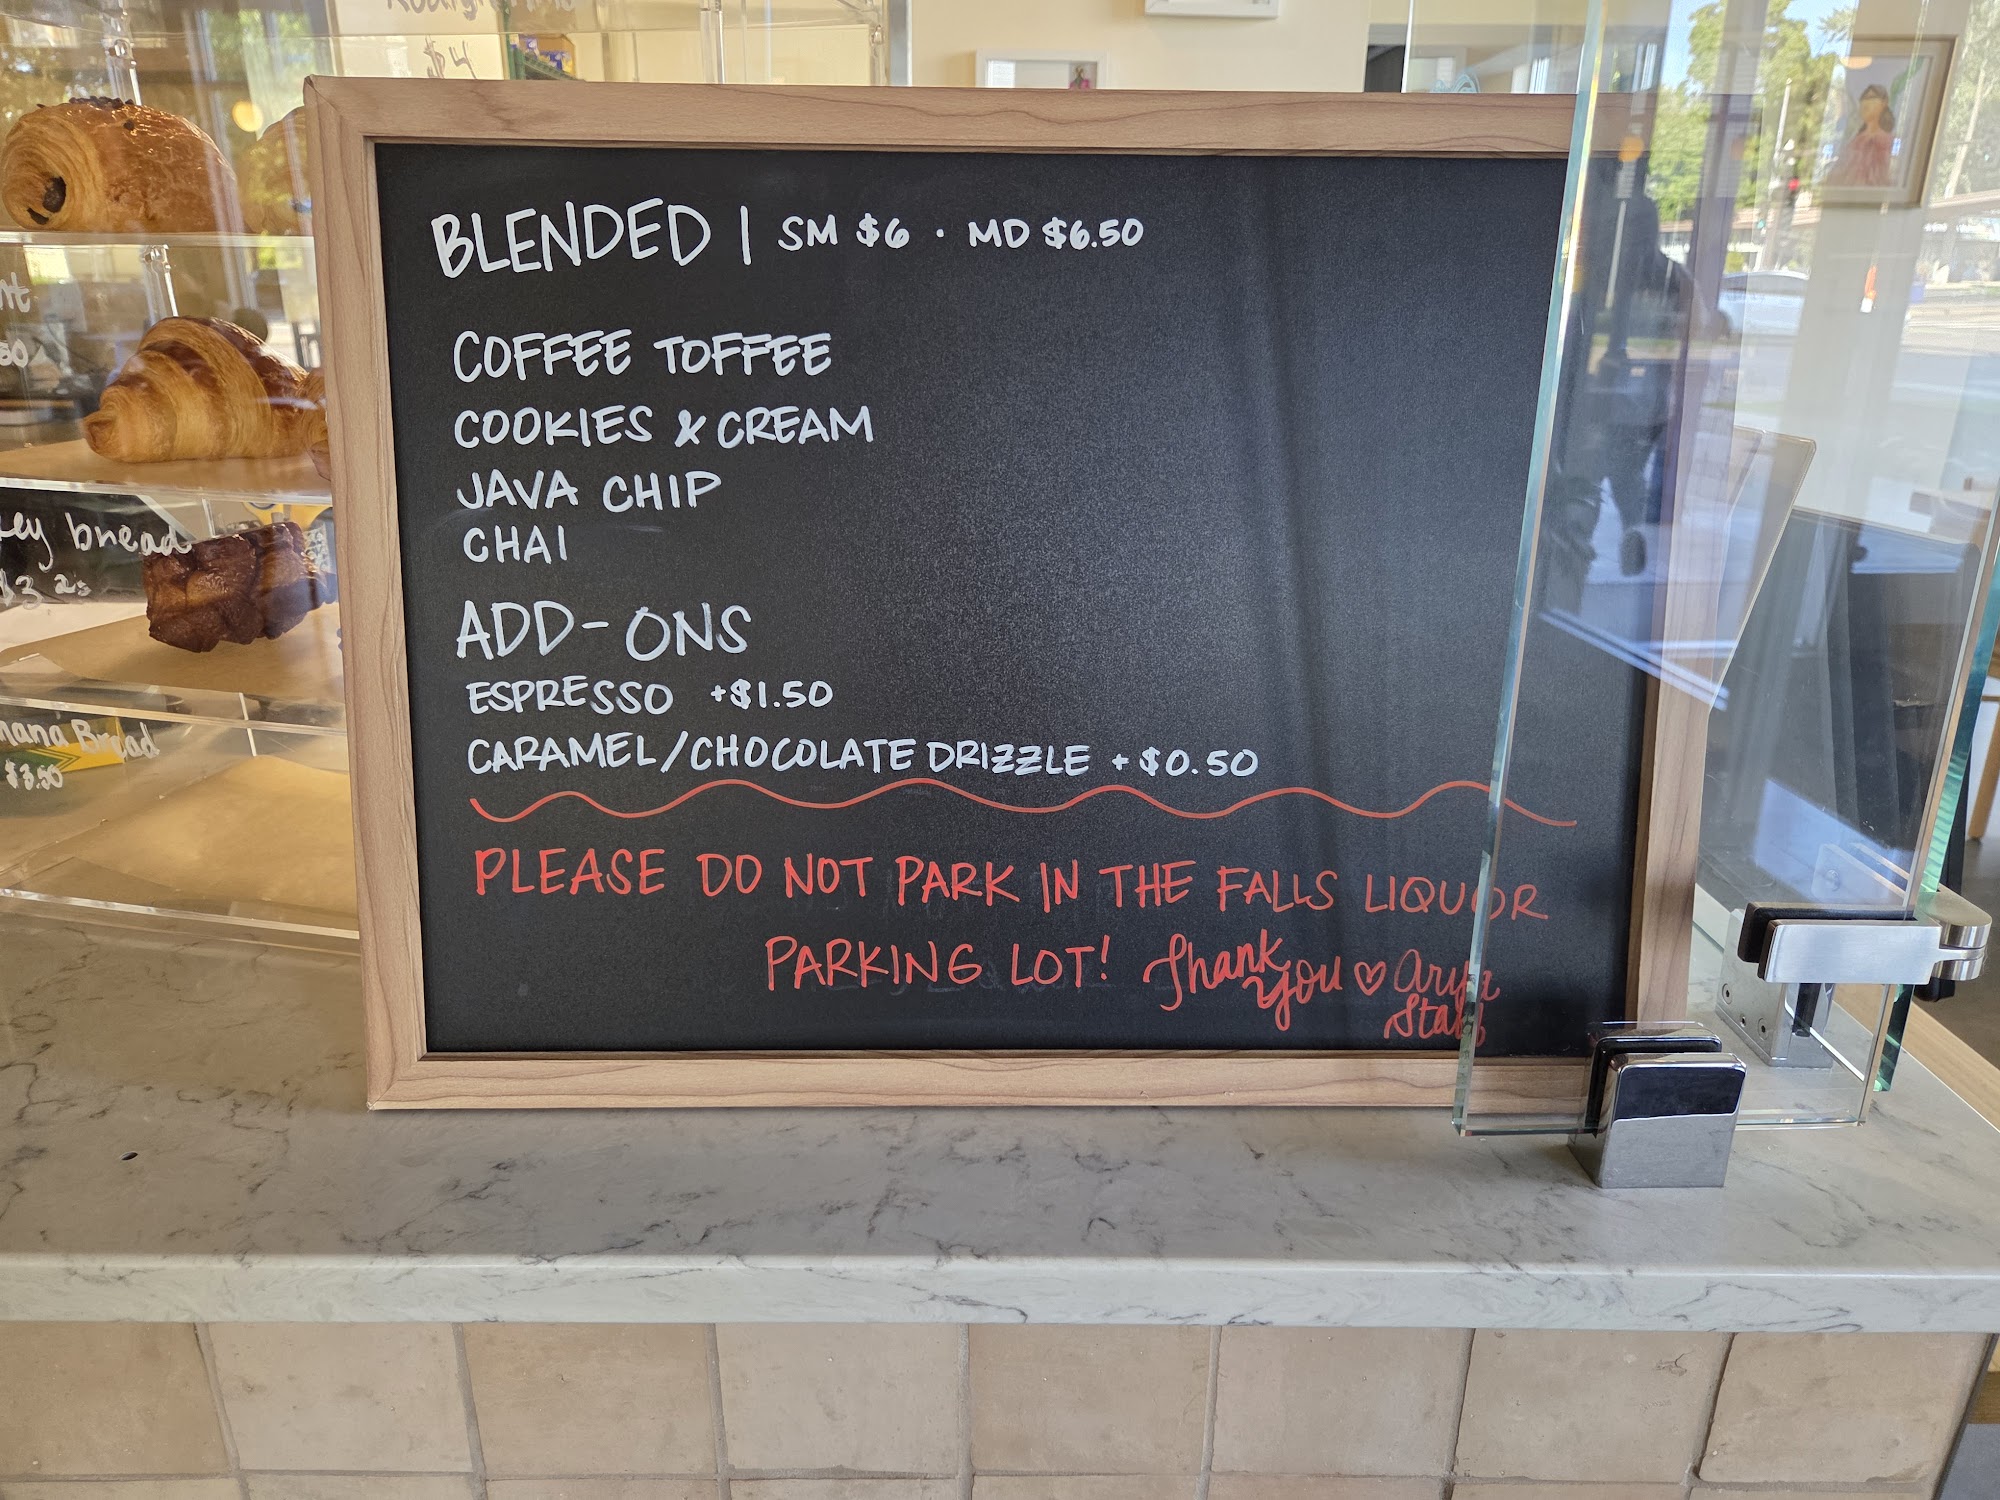 $4
BLENDED | SM $6 · MD $6.50
COFFEE TOFFEE
COOKIES & CREAM
JAVA CHIP
CHAI
ADD-ONS
ESPRESSO +$1.50
CARAMEL/CHOCOLATE DRIZZLE +$0.50
PLEASE DO NOT PARK IN THE FALLS LIQUOR
PARKING LOT! Thank you ♡
Staff
bread
Bread
$3.50